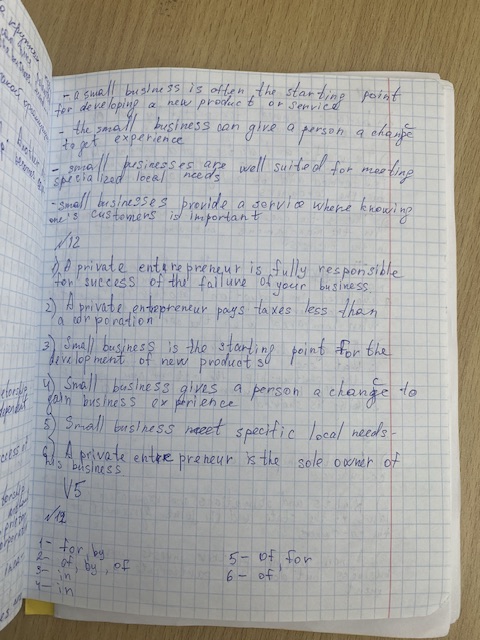 - a small business is often the starting point
for developing a new product or service
- the small business can give a person a change
to get experience
- small businesses are well suited for meeting
specialized local needs
- small businesses provide a service where knowing
one's customers is important
№12
1) A private entrepreneur is fully responsible
for success of the failure of your business.
2) A private entepreneur pays taxes less than
a corporation
3) Small business is the starting point for the
development of new products
4) Small business gives a person a change to
gain business experience
5) Small business meet specific local needs-
6) A private entrepreneur is the sole owner of
his business
V5
№12
1- for, by
2- of, by, of
3- in
4- in
5- of, for
6- of